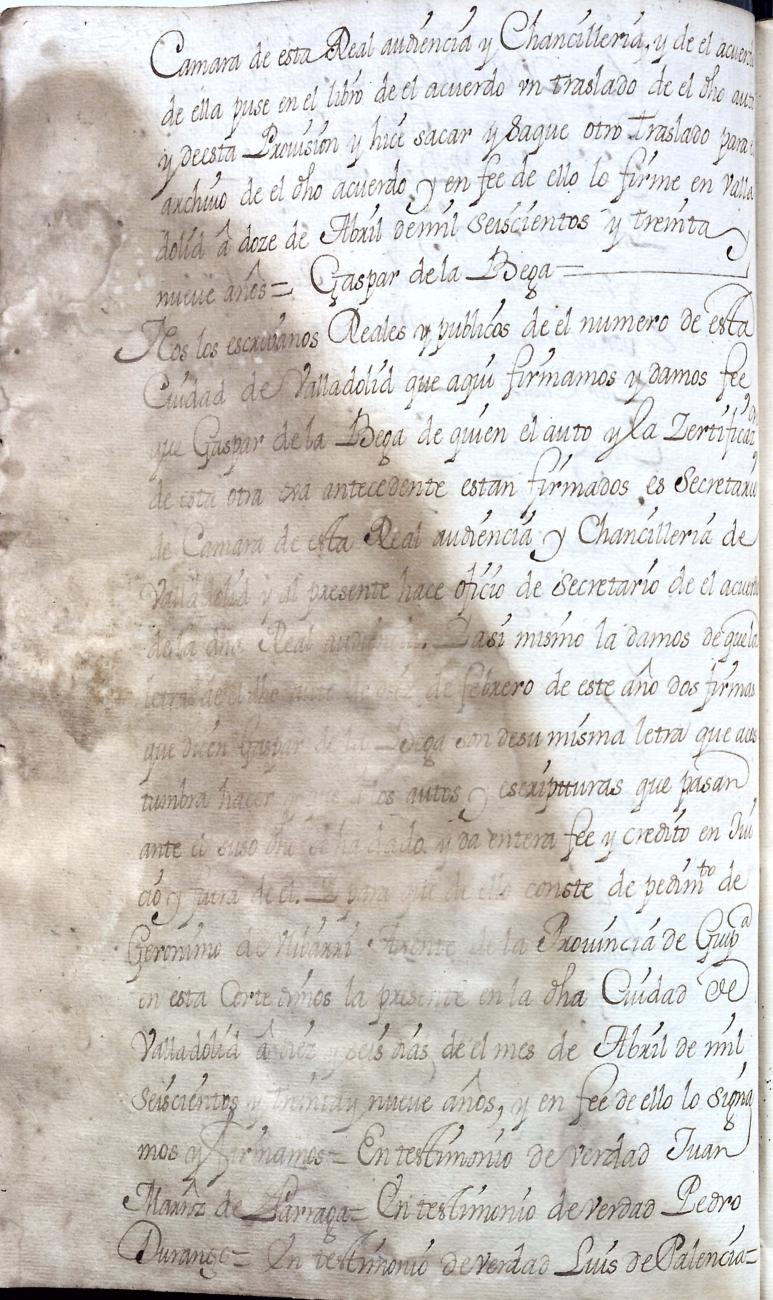 Camara de esta Real audiencia y Chancilleria, y de el acuerdo
de ella puse en el libro de el acuerdo vn traslado de el dho auto
y deesta Provision y hice sacar y saque otro traslado para
archivo de el dho acuerdo y en fee de ello lo firme en Valla
dolid â doze de Abril demil seiscientos y treinta y
nueve años = Gaspar de la Bega =
Nos los escrivanos Reales y publicos de el numero de esta
Ciudad de Valladolid que aqui firmamos y damos fee
que Gaspar de la Bega de quien el auto y la Zertificaz
de esta otra oxa antecedente estan firmados es Secretario
de Camara de esta Real audiencia y Chancilleria de
Valladolid y al presente hace oficio de Secretario de el acuerdo
de la dha Real audiencia. asi mismo la damos de que la
letra de el dho de febrero de este año dos firmas
que dicen Gaspar de la Bega son desu misma letra que acos
tumbra hacer autos y escriptturas que pasan
ante el suso dho se ha dado y da entera fee y credito en Jui
cio y fuera de el. para que de ello conste de pedimto de
Geronimo de Ajente de la Provincia de Guipa
en esta Corte dimos la presente en la dha Ciudad de
Valladolid â diez y seis dias de el mes de Abril de mil
Seiscientos y treinta y nueve años, y en fee de ello lo signa
mos y firmamos = En testimonio de verdad Juan
Marnz de Parraga = En testimonio de verdad Pedro
Durango = En testimonio de verdad Luis de Palencia =